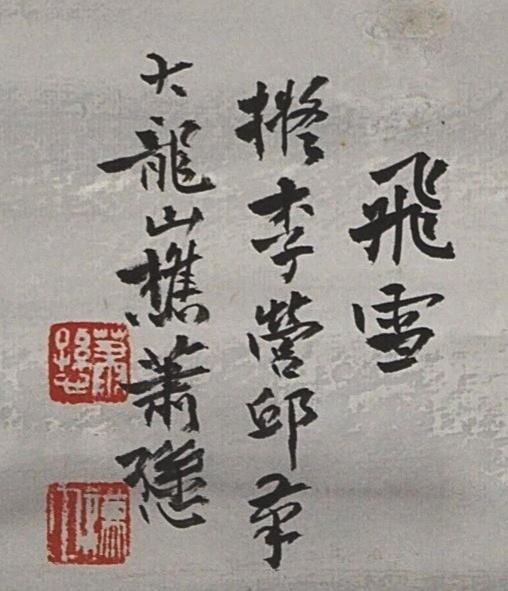 飛雪
擬李營邱筆
大龍山樵蕭愻
蕭愻